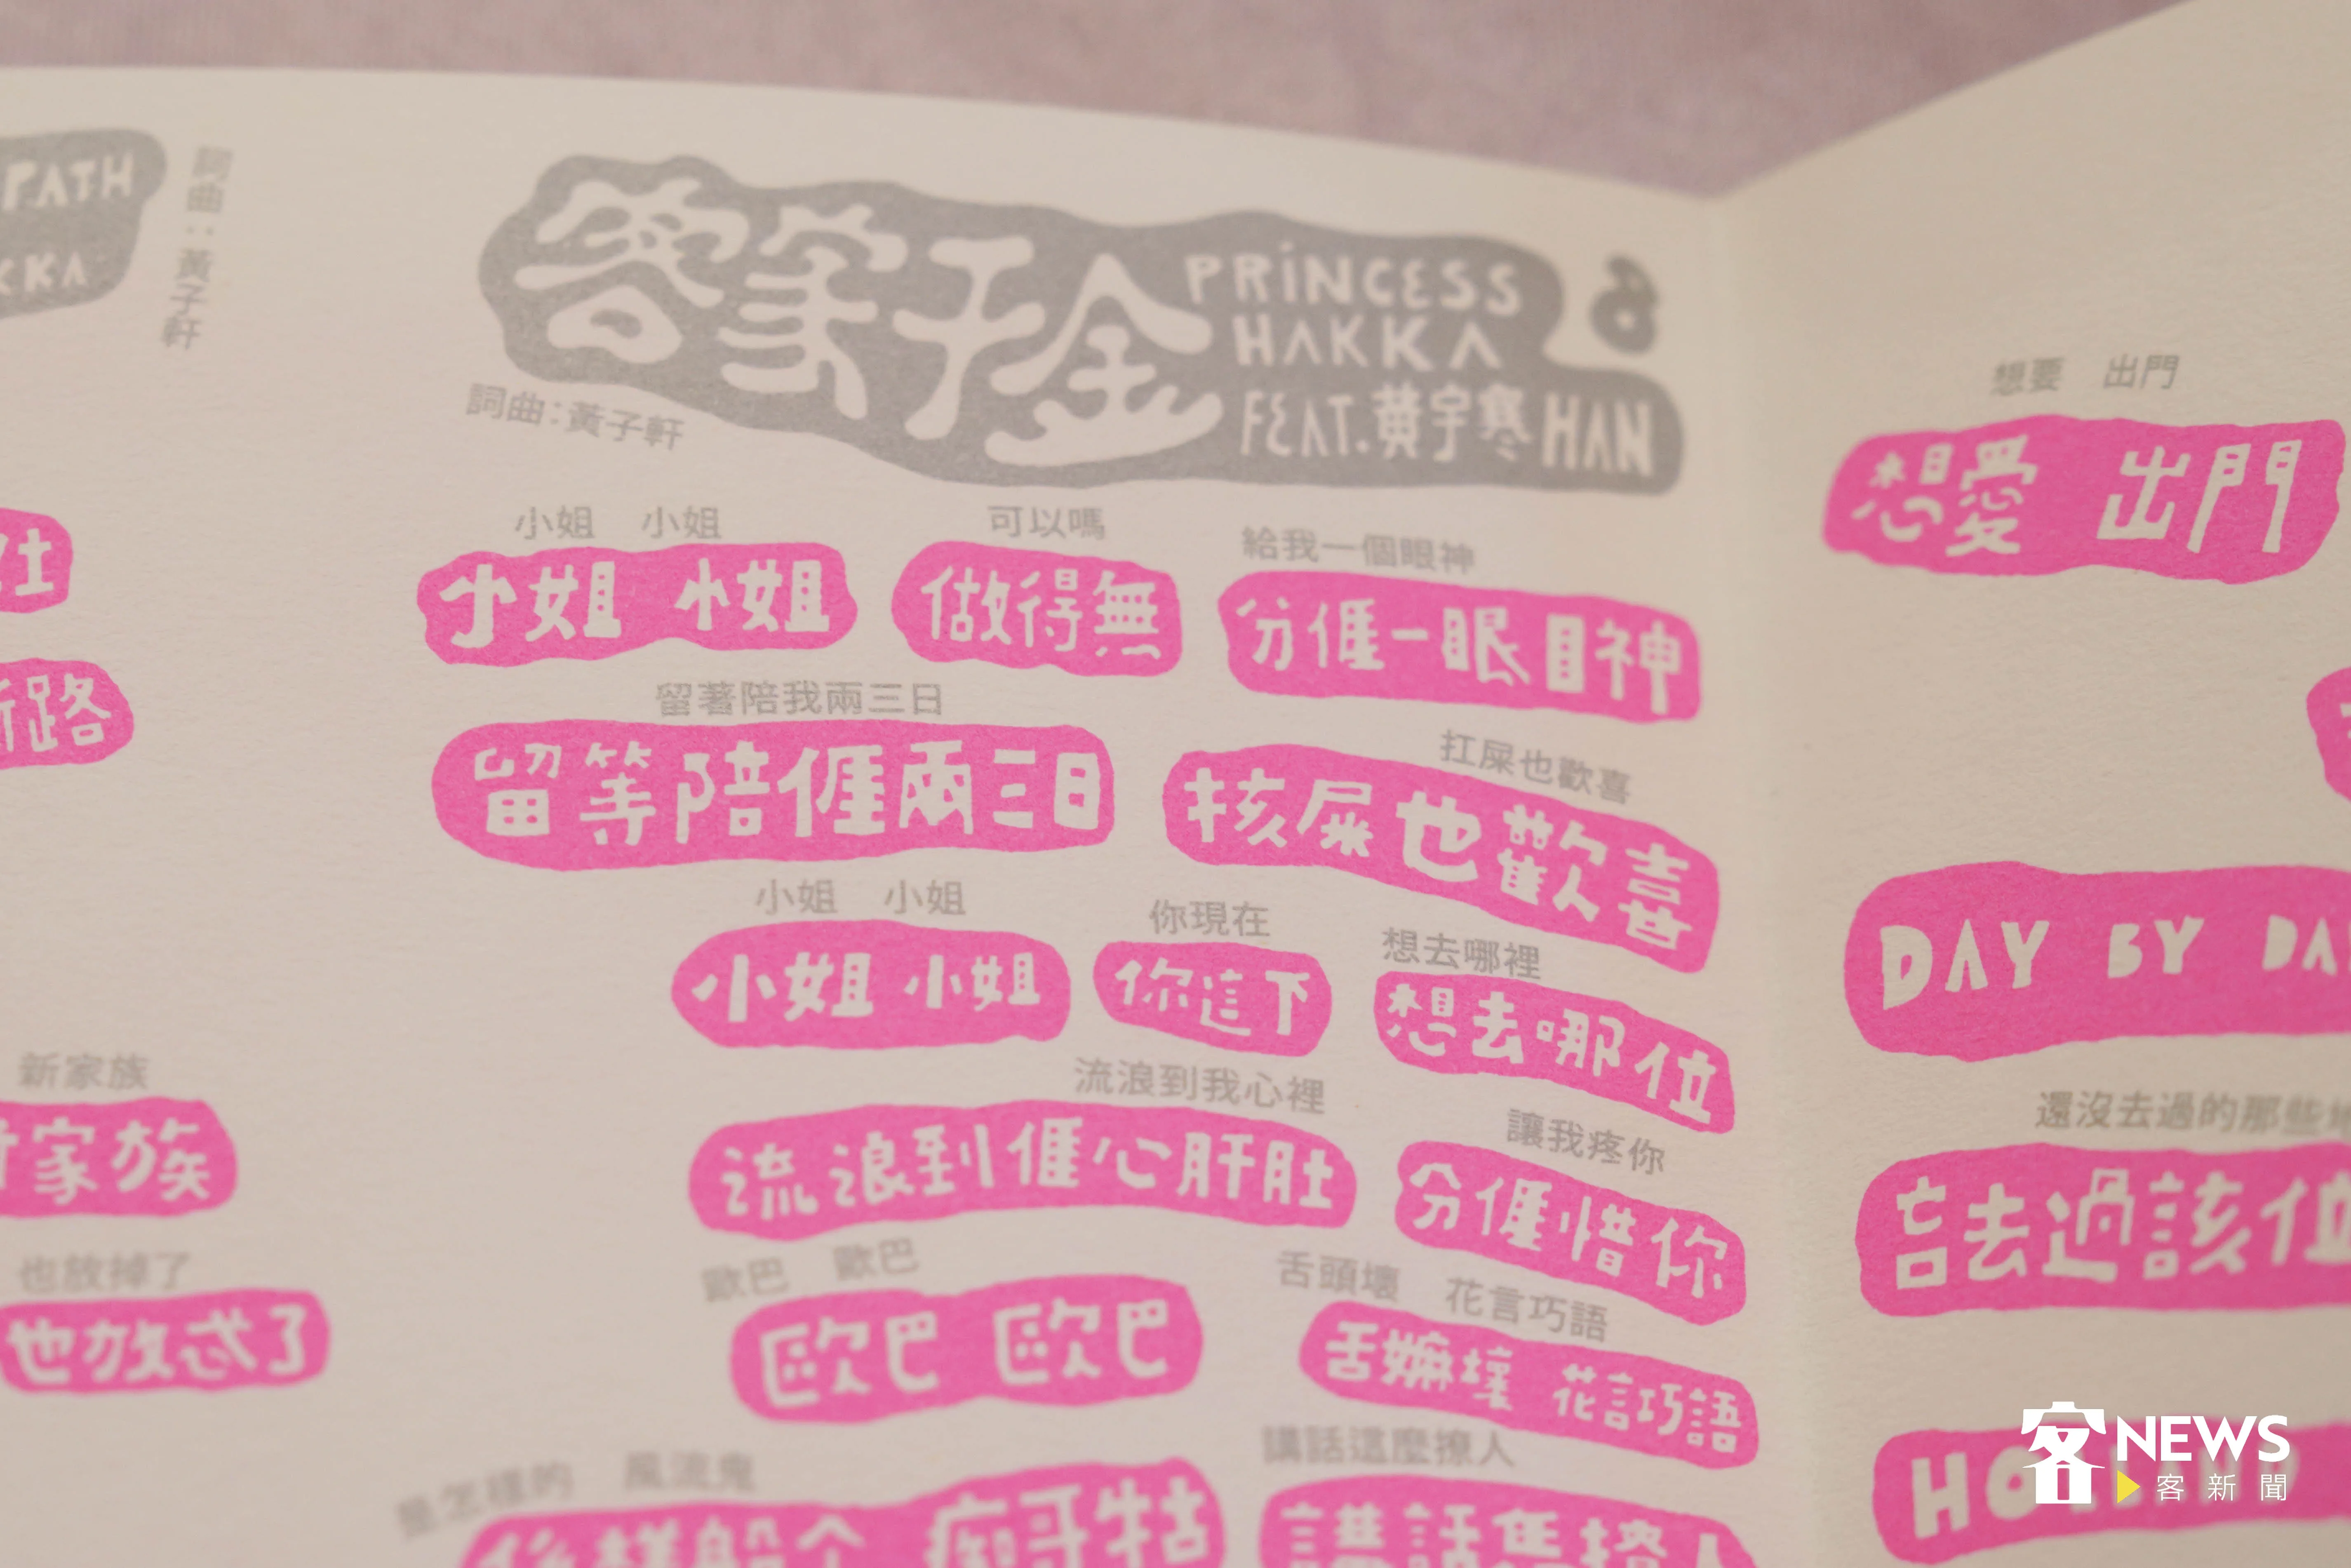 PATH
KKA
詞曲：黃子軒
路
新家族
家族
也放掉了
也放忒了
客家千金
PRINCESS
HAKKA
FEAT.黃宇寒 HAN
6
詞曲：黃子軒
小姐 小姐 可以嗎 給我一個眼神
小姐 小姐 做得無 分𠊎一眼目神
留著陪我兩三日 扛屎也歡喜
留等陪𠊎兩三日 核屎也歡喜
小姐 小姐 你現在 想去哪裡
小姐 小姐 你這下 想去哪位
流浪到我心裡 讓我疼你
流浪到𠊎心肝肚 分𠊎惜你
歐巴 歐巴 舌頭壞 花言巧語
歐巴 歐巴 舌嫲壞 花言巧語
是怎樣的 風流鬼 講話這麼撩人
想要 出門
想愛 出門
DAY BY DA
還沒去過的那些
吂去過該位
客NEWS
客新聞